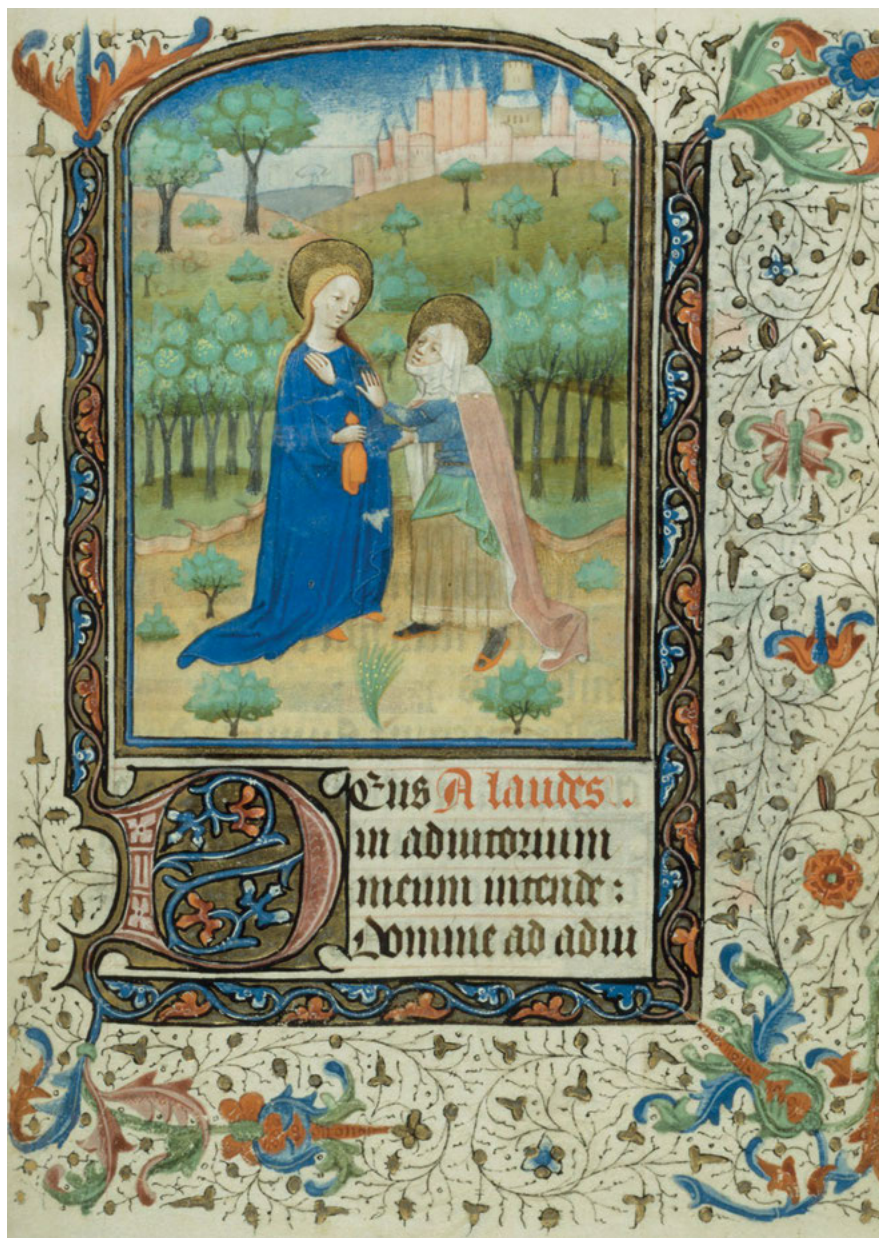 Deus A laudes .
in adiutorium
meum intende :
Domine ad adiu